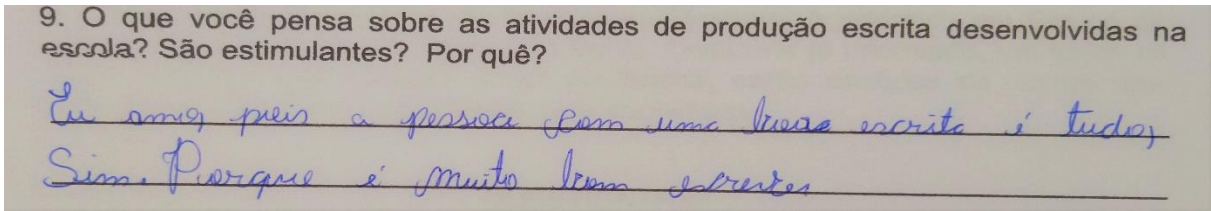 9. O que você pensa sobre as atividades de produção escrita desenvolvidas na
escola? São estimulantes? Por quê?
Eu amo, pois a pessoa com uma boas escrita é tudo,
Sim. Porque é muito bom escrever